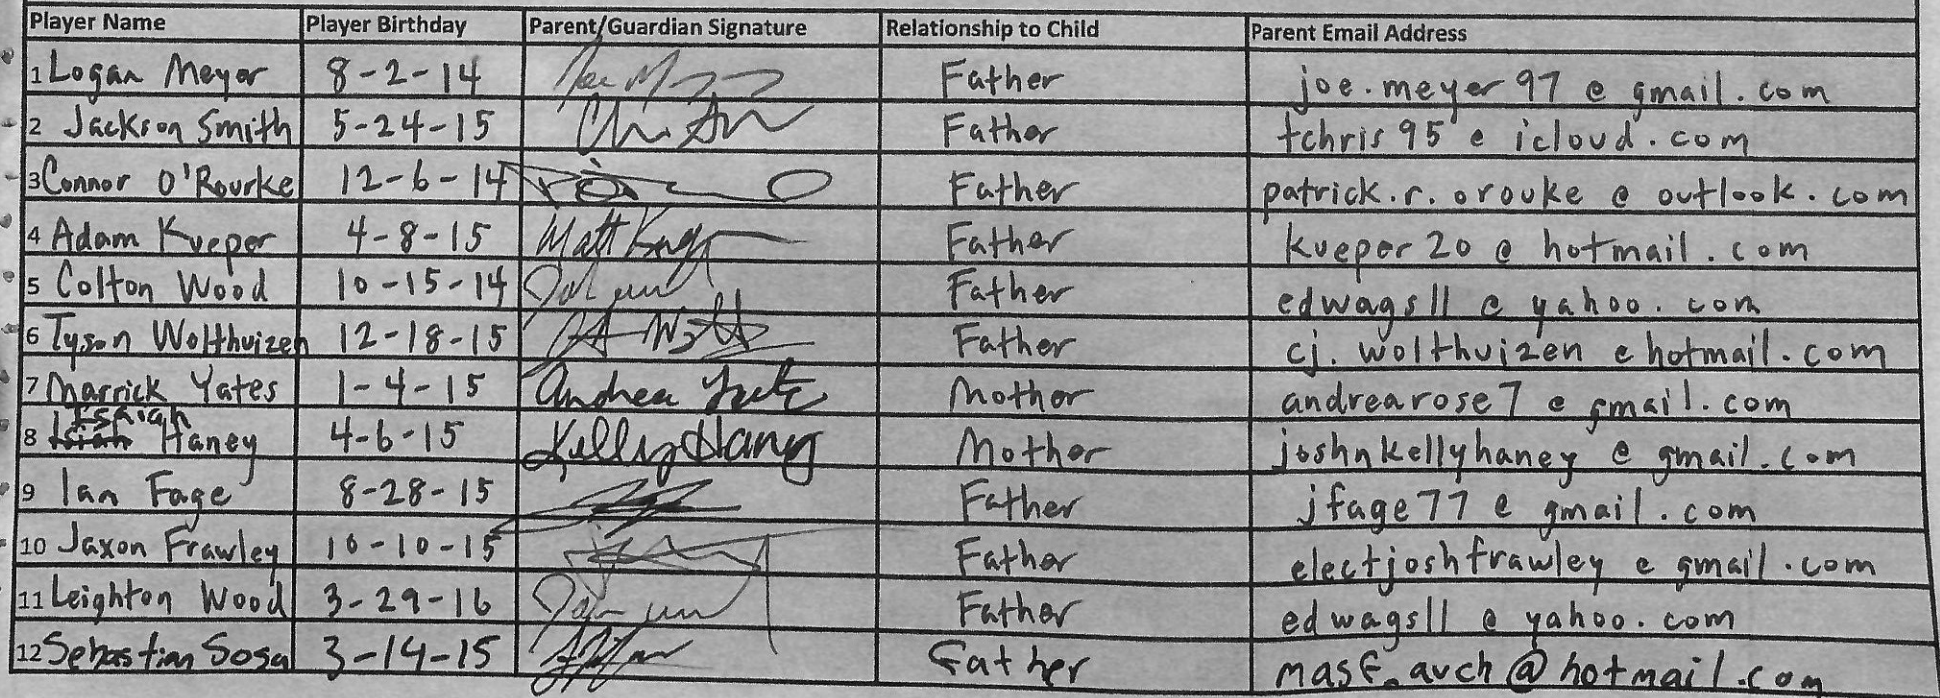 Player Name Player Birthday Parent/Guardian Signature Relationship to Child Parent Email Address
1 Logan Meyer 8-2-14 Father joe.meyer97@gmail.com
2 Jackson Smith 5-24-15 Father tchris95@icloud.com
3 Connor O'Rourke 12-6-14 Father patrick.r.orouke@outlook.com
4 Adam Kueper 4-8-15 Matt Father kueper20@hotmail.com
5 Colton Wood 10-15-14 Father edwags11@yahoo.com
6 Tyson Wolthuizen 12-18-15 Father cj.wolthuizen@hotmail.com
7 Marrick Yates 1-4-15 Andrea Yates Mother andrearose7@gmail.com
8 Isaiah Haney 4-6-15 Kelly Haney Mother joshnkellyhaney@gmail.com
9 Ian Fage 8-28-15 Father jfage77@gmail.com
10 Jaxon Frawley 10-10-15 Father electjoshfrawley@gmail.com
11 Leighton Wood 3-29-16 Father edwags11@yahoo.com
12 Sebastian Sosa 3-14-15 Father @hotmail.com